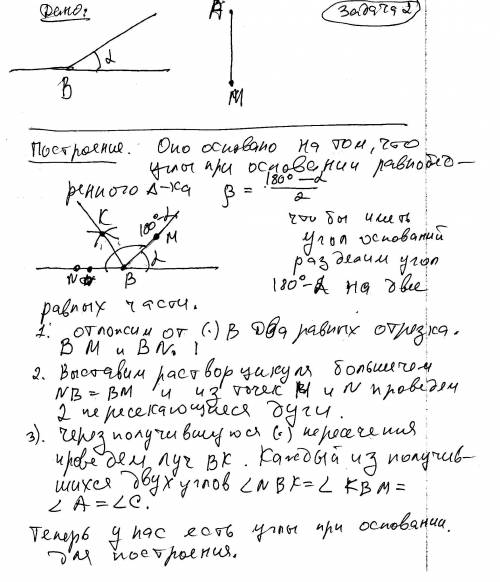 Дано:
A
Задача 2
α
B
M
Построение. Оно основано на том, что
углы при основании равнобед-
ренного Δ-ка β = 180° - α / 2
K
180°-α
M
α
N
B
что бы иметь
угол оснований
разделим угол
180°-α на две
равных части.
1. отложим от (·) B два равных отрезка.
BM и BN.
2. Выставим раствор цикуля большечем
NB = BM и из точек M и N проведем
2 пересекающиеся дуги.
3). Через получившуюся (·) пересечения
проведем луч BK. Каждый из получив-
шихся двух углов ∠NBK = ∠KBM =
∠A = ∠C.
Теперь у нас есть углы при основании.
для построения.